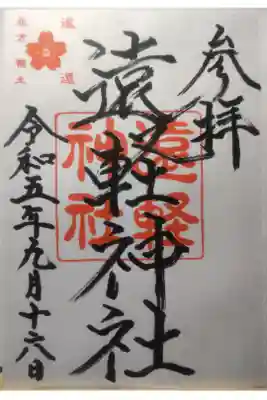 参拝
遠軽神社
遠軽
神社
令和五年九月十六日